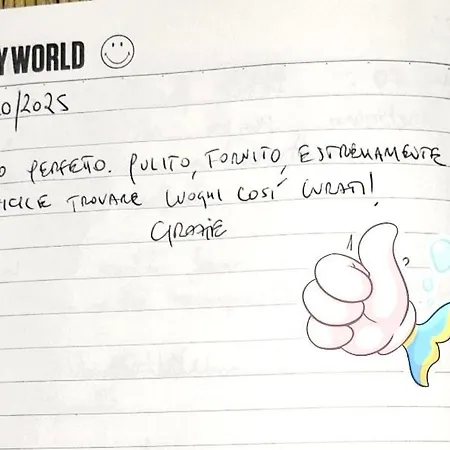 YWORLD
0/2025
O PERFETTO. PULITO, FORNITO, ESTREMAMENTE
FICILE TROVARE LUOGHI COSÍ CURATI!
GRAZIE